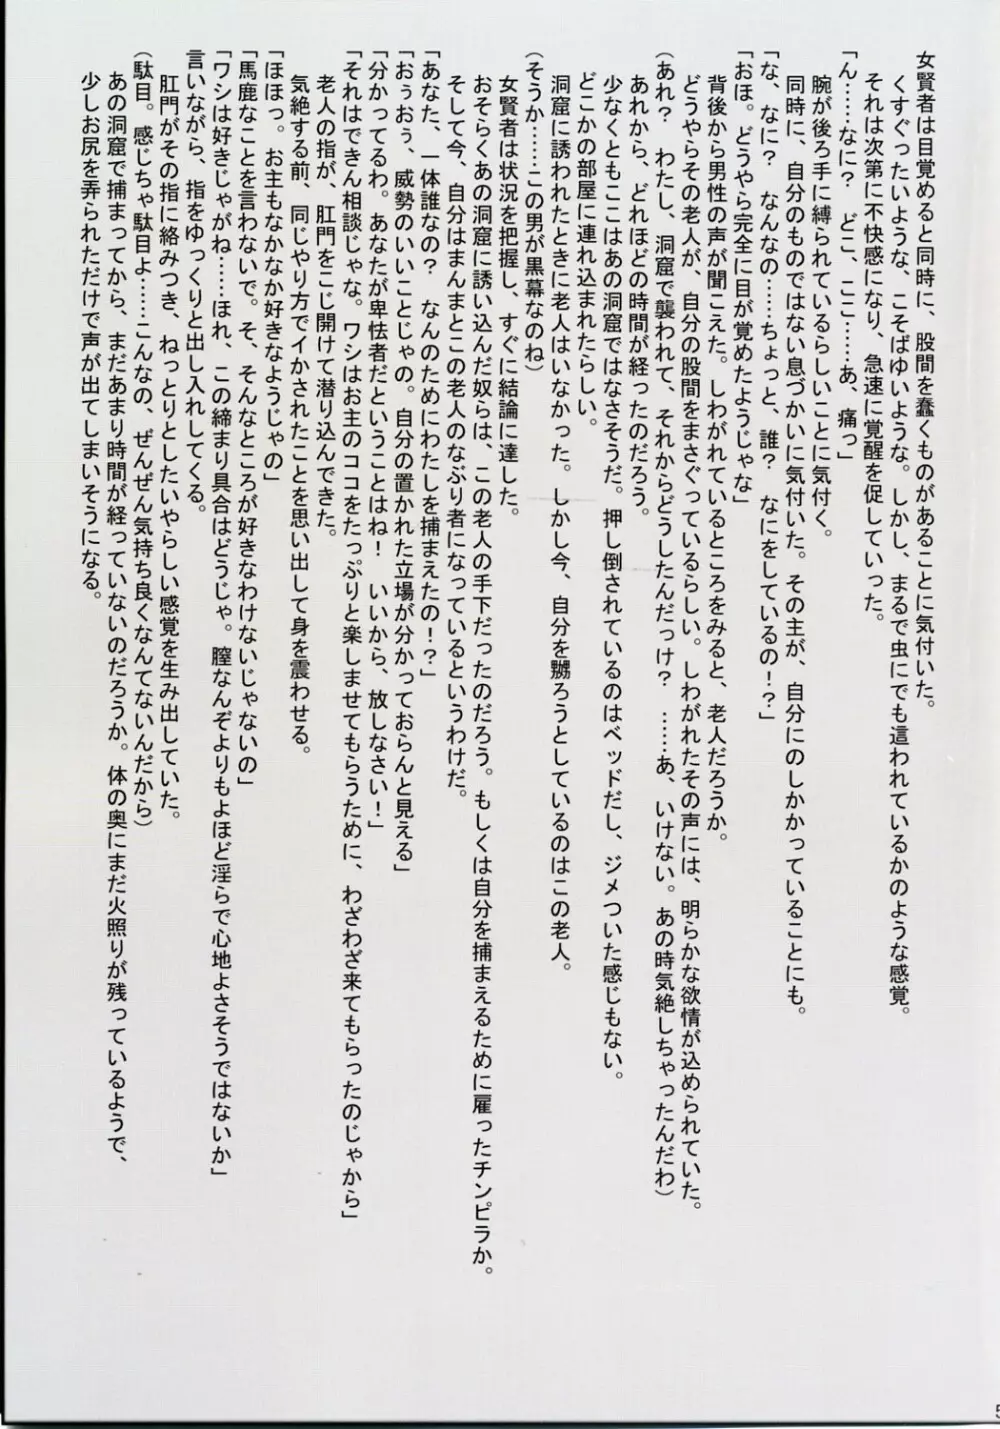 女賢者は目覚めると同時に、股間を蠢くものがあることに気付いた。
くすぐったいような、こそばゆいような。しかし、まるで虫にでも這われているかのような感覚。
それは次第に不快感になり、急速に覚醒を促していった。
「ん……なに？　どこ、ここ……あ、痛っ」
腕が後ろ手に縛られているらしいことに気付く。
同時に、自分のものではない息づかいに気付いた。その主が、自分にのしかかっていることにも。
「な、なに？　なんなの……ちょっと、誰？　なにをしているの！？」
「おほ。どうやら完全に目が覚めたようじゃな」
背後から男性の声が聞こえた。しわがれているところをみると、老人だろうか。
どうやらその老人が、自分の股間をまさぐっているらしい。しわがれたその声には、明らかな欲情が込められていた。
（あれ？　わたし、洞窟で襲われて、それからどうしたんだっけ？　……あ、いけない。あの時気絶しちゃったんだわ）
あれから、どれほどの時間が経ったのだろう。
少なくともここはあの洞窟ではなさそうだ。押し倒されているのはベッドだし、ジメついた感じもない。
どこかの部屋に連れ込まれたらしい。
洞窟に誘われたときに老人はいなかった。しかし今、自分を嬲ろうとしているのはこの老人。
（そうか……この男が黒幕なのね）
女賢者は状況を把握し、すぐに結論に達した。
おそらくあの洞窟に誘い込んだ奴らは、この老人の手下だったのだろう。もしくは自分を捕まえるために雇ったチンピラか。
そして今、自分はまんまとこの老人のなぶり者になっているというわけだ。
「あなた、一体誰なの？　なんのためにわたしを捕まえたの！？」
「おぅおぅ、威勢のいいことじゃの。自分の置かれた立場が分かっておらんと見える」
「分かってるわ。あなたが卑怯者だということはね！　いいから、放しなさい！」
「それはできん相談じゃな。ワシはお主のココをたっぷりと楽しませてもらうために、わざわざ来てもらったのじゃから」
老人の指が、肛門をこじ開けて潜り込んできた。
気絶する前、同じやり方でイかされたことを思い出して身を震わせる。
「ほほっ。お主もなかなか好きなようじゃの」
「馬鹿なことを言わないで。そ、そんなところが好きなわけないじゃないの」
「ワシは好きじゃがね……ほれ、この締まり具合はどうじゃ。膣なんぞよりもよほど淫らで心地よさそうではないか」
言いながら、指をゆっくりと出し入れしてくる。
肛門がその指に絡みつき、ねっとりとしたいやらしい感覚を生み出していた。
（駄目。感じちゃ駄目よ……こんなの、ぜんぜん気持ち良くなんてないんだから）
あの洞窟で捕まってから、まだあまり時間が経っていないのだろうか。体の奥にまだ火照りが残っているようで、
少しお尻を弄られただけで声が出てしまいそうになる。